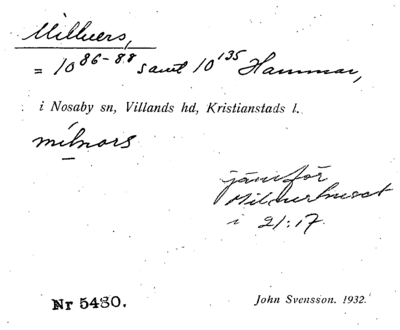 Millners,
= 10 86-88 samt 10 135 Hammar,
i Nosaby sn, Villands hd, Kristianstads l.
milnors
jämför
Milnerhuset
i 21:17.
Nr 5480.
John Svensson. 1932.